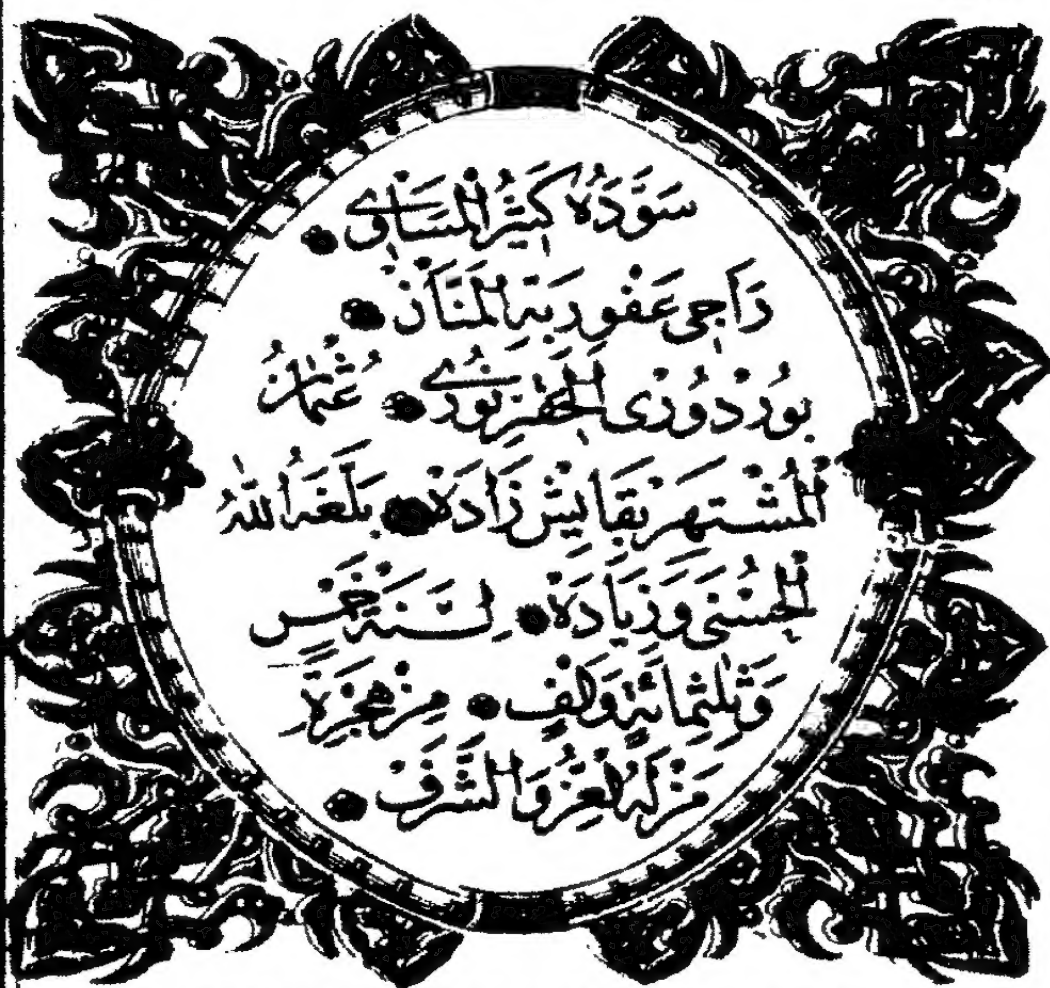 سَوَّدَهُ كَثِيرُ الْمَسَاوِي
رَاجِي عَفْوِ رَبِّهِ الْمَنَّانْ
بُورْدُورْدِي الْحَافِظْ نُورِي عُثْمَانُ
الْمُشْتَهِرْ بِقَايِشْ زَادَهْ بَلَّغَهُ اللهُ
الْحُسْنَى وَزِيَادَةْ لِسَنَةِ خَمْسٍ
وَثَلٰثِمِائَةٍ وَاَلْفٍ مِنْ هِجْرَةِ
مَنْ لَهُ الْعِزُّ وَالشَّرَفْ